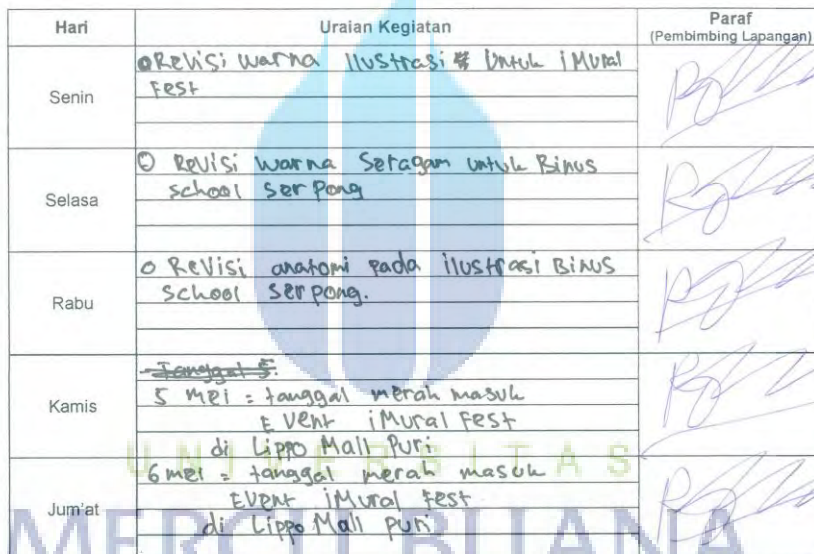 Hari Uraian Kegiatan Paraf
(Pembimbing Lapangan)
Senin
Revisi warna ilustrasi untuk iMural
Fest
Selasa
Revisi warna Seragam untuk Binus
school serpong
Rabu
Revisi anatomi pada ilustrasi Binus
school serpong.
Kamis
Tanggal 5
5 mei = tanggal merah masuk
Event iMural Fest
di Lippo Mall Puri
UNIVERSITAS
Jum'at
6 mei = tanggal merah masuk
Event iMural Fest
di Lippo Mall puri
MERCU BUANA